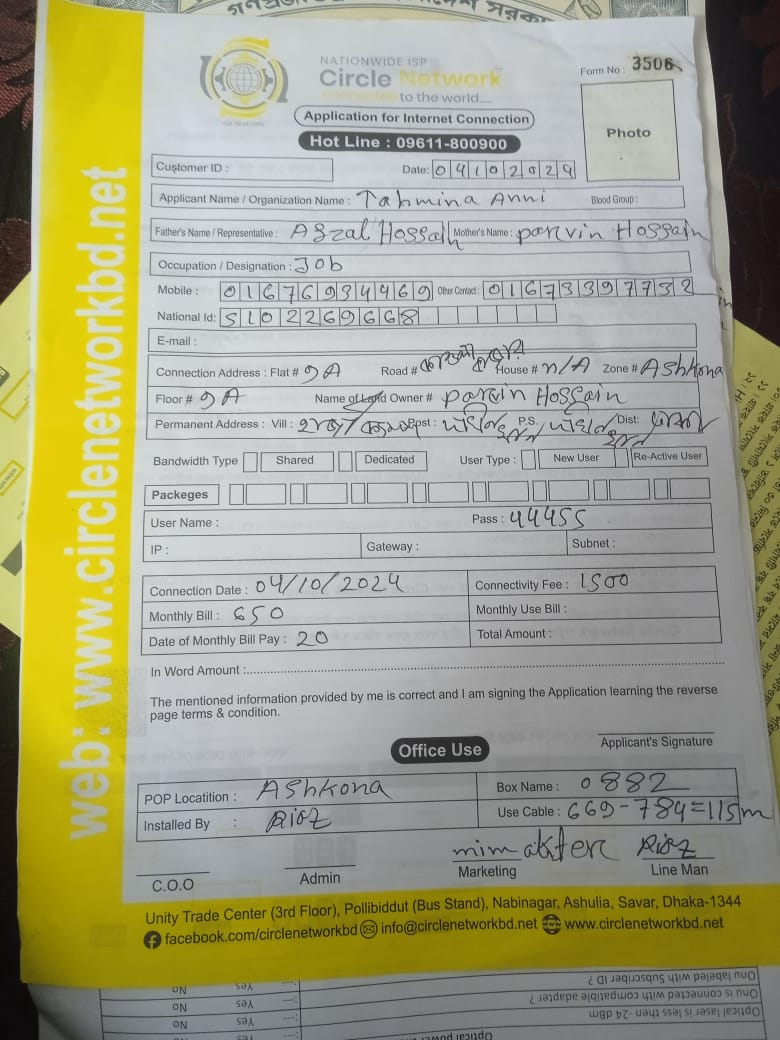 NATIONWIDE ISP
Circle Network
Connected to the world....
Form No : 3506
Application for Internet Connection
Hot Line : 09611-800900
Photo
Customer ID :
Date: 04102024
Applicant Name / Organization Name : Tahmina Anni Blood Group :
Father's Name / Representative : Afzal Hossain Mother's Name : parvin Hossain
Occupation / Designation : Job
Mobile : 01676934469 Other Contact : 01673397732
National Id: 5102269668
E-mail :
Connection Address : Flat # 9A Road # House # n/A Zone # Ashkona
Floor # 9A Name of Land Owner # parvin Hossain
Permanent Address : Vill : Post : P.S. Dist:
Bandwidth Type Shared Dedicated User Type : New User Re-Active User
Packeges
User Name : Pass : 44455
IP : Gateway : Subnet :
Connection Date : 04/10/2024 Connectivity Fee : 1500
Monthly Bill : 650 Monthly Use Bill :
Date of Monthly Bill Pay : 20 Total Amount :
In Word Amount :
The mentioned information provided by me is correct and I am signing the Application learning the reverse
page terms & condition.
Applicant's Signature
Office Use
POP Locatition : Ashkona Box Name : 0882
Installed By : Riaz Use Cable : 669-784=115m
mim akter Riaz
C.O.O Admin Marketing Line Man
Unity Trade Center (3rd Floor), Pollibiddut (Bus Stand), Nabinagar, Ashulia, Savar, Dhaka-1344
facebook.com/circlenetworkbd info@circlenetworkbd.net www.circlenetworkbd.net
web: www.circlenetworkbd.net
Onu labeled with Subscriber ID ?
Onu is connected with compatible adapter ? Yes No
Optical laser is less then -24 dBm Yes No